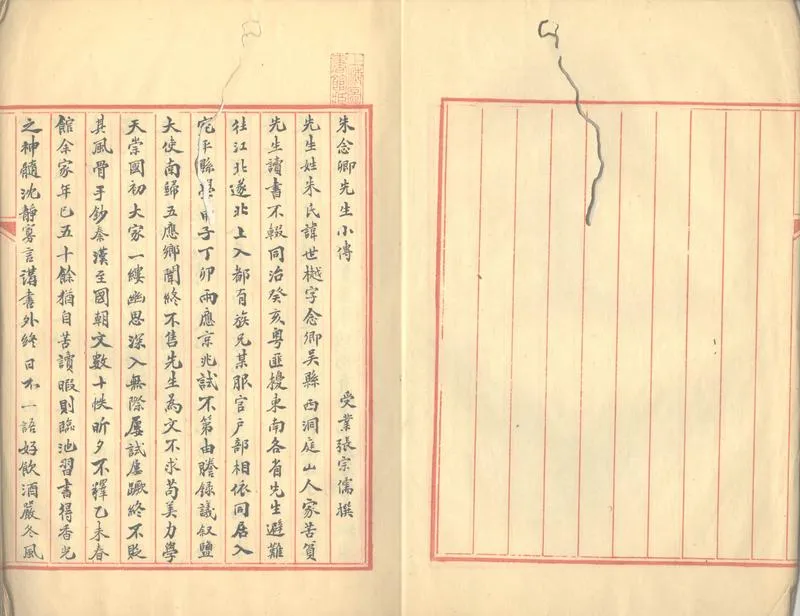 朱念卿先生小傳 受業張宗儒撰
先生姓朱氏諱世樾字念卿吳縣西洞庭山人家苦貧
先生讀書不輟同治癸亥粵匪擾東南各省先生避難
往江北遂北上入都有族兄某服官户部相依同居入
宛平縣學甲子丁卯兩應京兆試不第由謄錄議叙鹽
大使南歸五應鄉闈終不售先生為文不求苟美力學
天崇國初大家一縷幽思深入無際屢試屢蹶終不貶
其風骨手鈔秦漢至國朝文數十帙昕夕不釋乙未春
館余家年已五十餘猶自苦讀暇則臨池習書得香光
之神髓沈靜寡言講書外終日不一語好飲酒嚴冬風